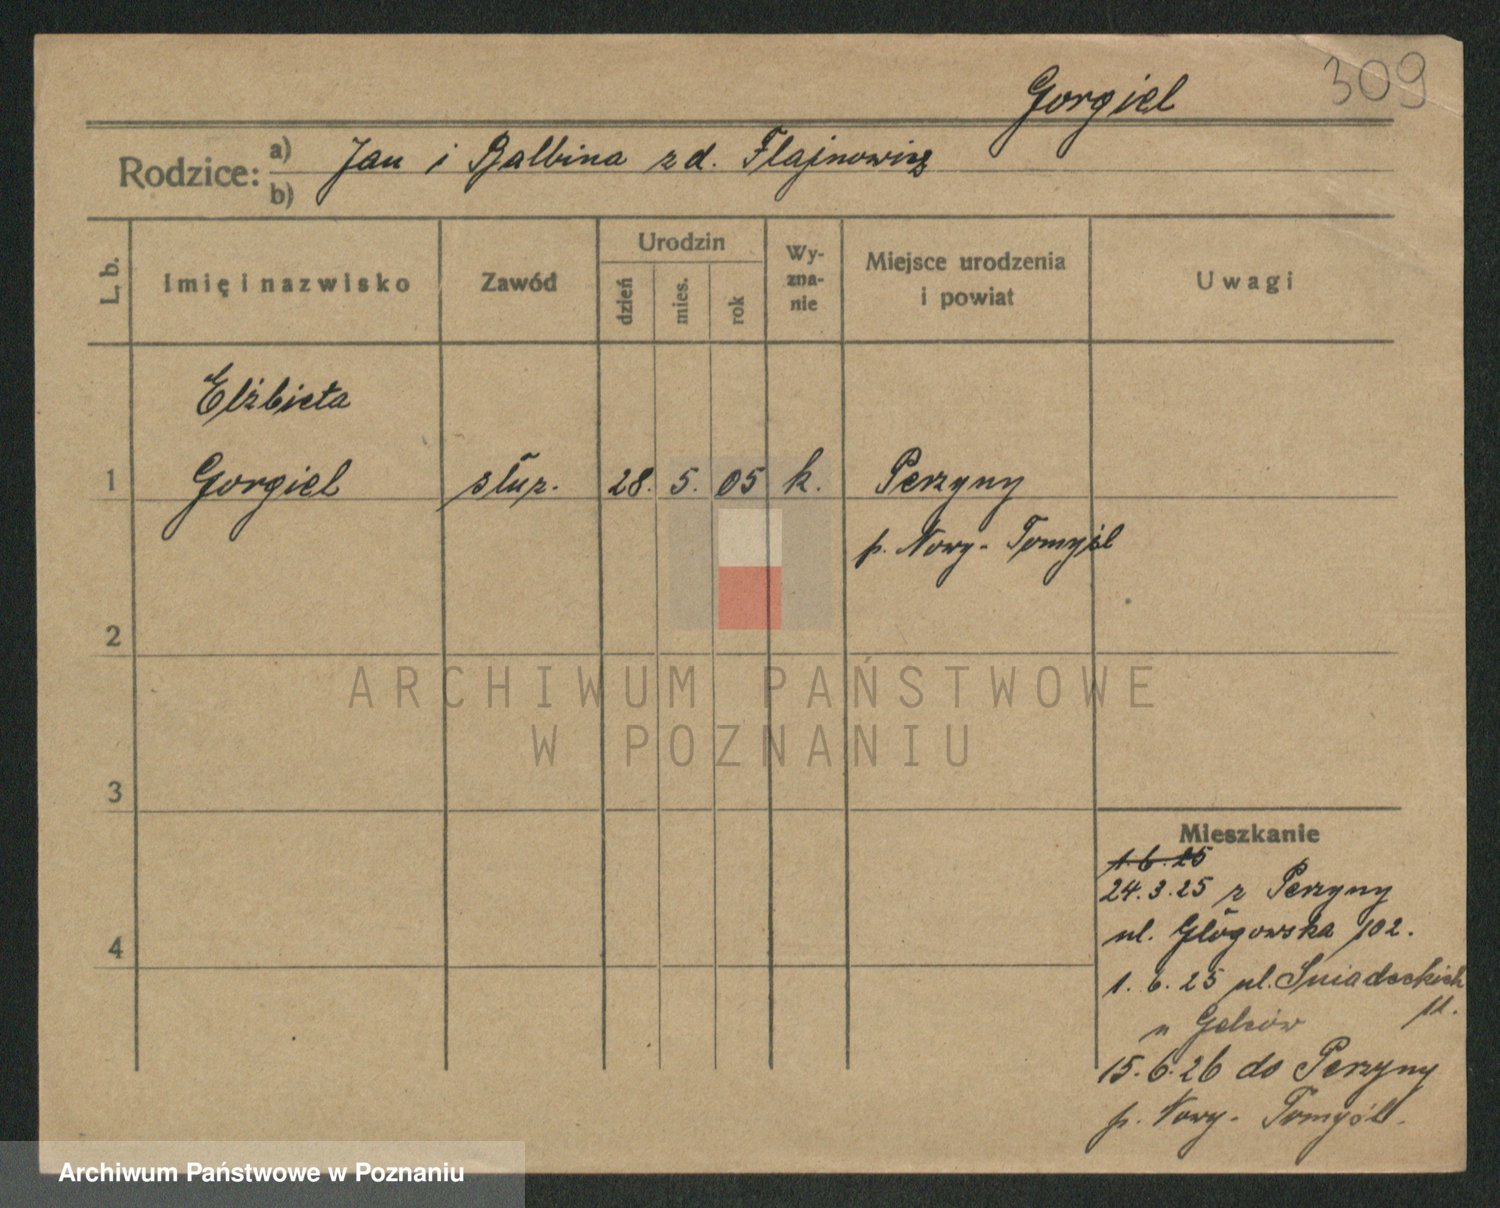 309
Gorgiel
Rodzice: a) Jan i Balbina z d. Flajnowicz
b)
L. b. Imię i nazwisko Zawód Urodzin Wyznanie Miejsce urodzenia i powiat Uwagi
dzień mies. rok
Elżbieta
1 Gorgiel służ. 28. 5. 05 k. Perzyny
p. Nowy-Tomyśl
2
ARCHIWUM PAŃSTWOWE
W POZNANIU
3
Mieszkanie
1.6.25
24.3.25 z Perzyny
4 ul. Głogowska 102.
1. 6. 25 ul. Śniadeckich
u
15.6.26 do Perzyny
p. Nowy-Tomyśl.
Archiwum Państwowe w Poznaniu